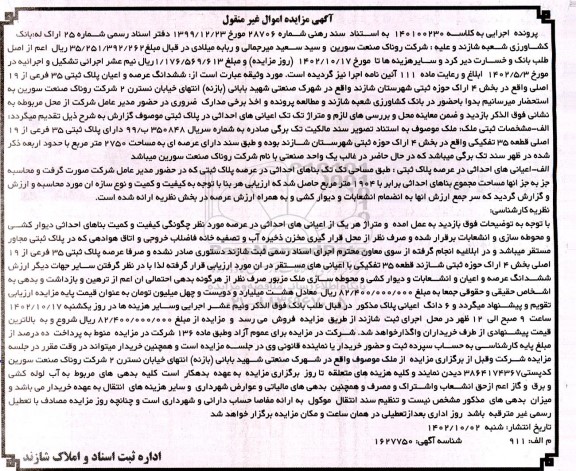 آگهی مزایده اموال غیر منقول
پرونده اجرایی به کلاسه ۱۴۰۱۰۰۲۳۰ به استناد سند رهنی شماره ۲۸۷۰۶ مورخ ۱۳۹۹/۱۲/۲۳ دفتر اسناد رسمی شماره ۲۵ اراک له: بانک
کشاورزی شعبه شازند و علیه : شرکت روناک صنعت سورین و سید سعید میرجمالی و ربابه میلادی در قبال مبلغ ۳۵/۲۵۱/۳۹۲/۲۶۲ ریال اعم از اصل
طلب بانک و خسارت دیر کرد و سایرهزینه ها تا مورخ ۱۴۰۲/۱۰/۱۷ (روز مزایده) و مبلغ ۱/۱۷۶/۵۶۹/۶۱۳ ریال نیم عشر اجرائی تشکیل و اجرائیه در
مورخ ۱۴۰۲/۵/۳ ابلاغ و رعایت ماده ۱۱۱ آئین نامه اجرا نیز گردیده است. مورد وثیقه عبارت است از: ششدانگ عرصه و اعیان پلاک ثبتی ۳۵ فرعی از ۱۹
اصلی واقع در بخش ۴ اراک حوزه ثبتی شهرستان شازند واقع در شهرک صنعتی شهید بابائی (بازنه) انتهای خیابان نسترن ۲ شرکت روناک صنعت سورین به
استحضار میرسانیم بدوا باحضور در بانک کشاورزی شعبه شازند و مطالعه پرونده و اخذ برخی مدارک ضروری در حضور مدیر عامل شرکت از محل مربوطه به
نشانی فوق الذکر بازدید و ضمن معاینه محل و بررسی های لازم و متراژ تک تک اعیانی های احداثی در پلاک ثبتی موصوف گزارش به شرح ذیل تقدیم میگردد:
الف-مشخصات ثبتی ملک: ملک موصوف به استناد تصویر سند مالکیت تک برگی صادره به شماره سریال ۳۵۰۸۴۸ ب/۹۹ دارای پلاک ثبتی ۳۵ فرعی از ۱۹
اصلی قطعه ۳۵ تفکیکی واقع در بخش ۴ اراک حوزه ثبتی شهرستان شازند بوده و طبق سند دارای عرصه ای به مساحت ۲۷۵۰ متر مربع با حدود اربعه ذکر
شده در ظهر سند تک برگی میباشد که در حال حاضر در غالب یک واحد صنعتی با نام شرکت روناک صنعت سورین میباشد
الف-اعیانی های احداثی در عرصه پلاک ثبتی : طبق مساحی تک تک بناهای احداثی در عرصه پلاک ثبتی که در حضور مدیر عامل شرکت صورت گرفت و محاسبه
جز به جز انها مساحت مجموع بناهای احداثی برابر با ۱۹۰۴ متر مربع حاصل شد که ارزیابی هر بنا با توجه به کیفیت و کمیت و نوع سازه ان مورد محاسبه و ارزش
و گزارش گردید که سر جمع ارزش انها به انضمام انشعابات و دیوار کشی و به همراه ارزش عرصه در بخش نظریه ارائه شده است.
نظریه کارشناسی:
با توجه به توضیحات فوق بازدید به عمل امده و متراژ هر یک از اعیانی های احداثی در عرصه مورد نظر چگونگی کیفیت و کمیت بناهای احداثی دیوار کشی
و محوطه سازی و انشعابات برقرار شده و صرف نظر از محل قرار گیری مخزن ذخیره آب و تصفیه خانه فاضلاب خروجی و اتاق هوادهی که در پلاک ثبتی مجاور
مستقر میباشد و در ابلاغیه انجام گرفته از سوی معاون محترم اجرای اسناد رسمی ثبت شازند دستوری صادر نشده و صرفا عرصه پلاک ثبتی ۳۵ فرعی از ۱۹
اصلی بخش ۴ اراک حوزه ثبتی شازند قطعه ۳۵ تفکیکی با اعیانی های مستقر در ان مورد ارزیابی قرار گرفته لذا با در نظر گرفتن سایر جهات دیگر ارزش
ششدانگ عرصه و اعیان و انشعابات و دیوار کشی و محوطه سازی ملک مزبور صرف نظر از هرگونه بدهی احتمالی ان اعم از ترهین و بازداشت و بدهی به
اشخاص حقیقی و حقوقی جمعا به مبلغ ۸۲/۴۰۰/۰۰۰/۰۰۰ ریال معادل هشت میلیارد و دویست و چهل میلیون تومان به عنوان قیمت پایه مزایده ارزیابی
و تقویم و پیشنهاد میگردد و ۶ دانگ اعیانی پلاک مذکور در قبال طلب بانک فوق الذکر ونیم عشر اجرایی وسایر هزینه ها در روز یکشنبه ۱۴۰۲/۱۰/۱۷
ساعت ۹ صبح الی ۱۲ ظهر در محل اجرای ثبت شازند از طریق مزایده فروش می رسد و مزایده از مبلغ ۸۲/۴۰۰/۰۰۰/۰۰۰ ریال شروع و به بالاترین
قیمت پیشنهادی از طرف خریداران واگذارخواهد شد. شرکت در مزایده برای عموم آزاد وطبق ماده ۱۳۶ شرکت در مزایده منوط به پرداخت ده درصد از
مبلغ پایه کارشناسی به حساب سپرده ثبت و حضور خریدار یا نماینده قانونی وی در جلسه مزایده است و همچنین خریدار میتواند در وقت مقرر در جلسه
مزایده شرکت وقبل از برگزاری مزایده از ملک موصوف واقع در شهرک صنعتی شهید بابائی (بازنه) انتهای خیابان نسترن ۲ شرکت روناک صنعت سورین
کدپستی ۳۸۶۴۱۷۴۳۶۷ دیدن نمایند و کلیه هزینه های متعلقه تا روز برگزاری مزایده به عهده بدهکار است کلیه بدهی های مربوط به آب لوله کشی
و برق و گاز اعم ازحق انشعاب واشتراک و مصرف و همچنین بدهی های مالیاتی و عوارض شهرداری و سایر هزینه های انتقال به عهده خریدار می باشد و
میزان بدهی های مذکور مشخص نیست و تنظیم سند انتقال موکول به ارائه مفاصا حساب دارائی و شهرداری است و چنانچه روز مزایده مصادف با تعطیل
رسمی غیر مترقبه باشد روز اداری بعدازتعطیلی در همان ساعت و مکان مزایده برگزار خواهد شد
تاریخ انتشار: شنبه ۱۴۰۲/۱۰/۰۲
م الف: ۹۱۱ شناسه آگهی: ۱۶۲۷۷۵۰
اداره ثبت اسناد و املاک شازند